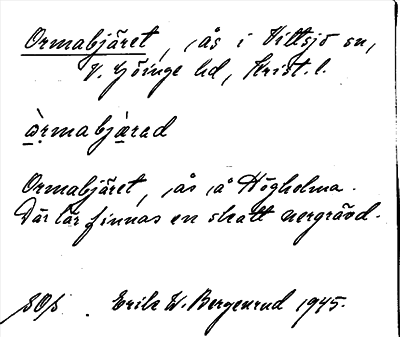 Ormabjäret, ås i Vittsjö sn,
V. Göinge hd, Krist. l.
òrmabjàrad
Ormabjäret, ås å Högholma.
Där lär finnas en skatt nergrävd.
Erik W. Bergenrud 1945.